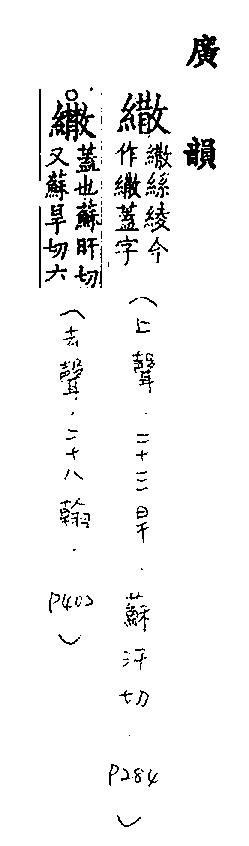 廣韻
繖 繖絲綾今作繖蓋字（上聲．二十三旱．蘇汗切．P284）
○繖 蓋也蘇旰切又蘇旱切六（去聲．二十八翰．P402）